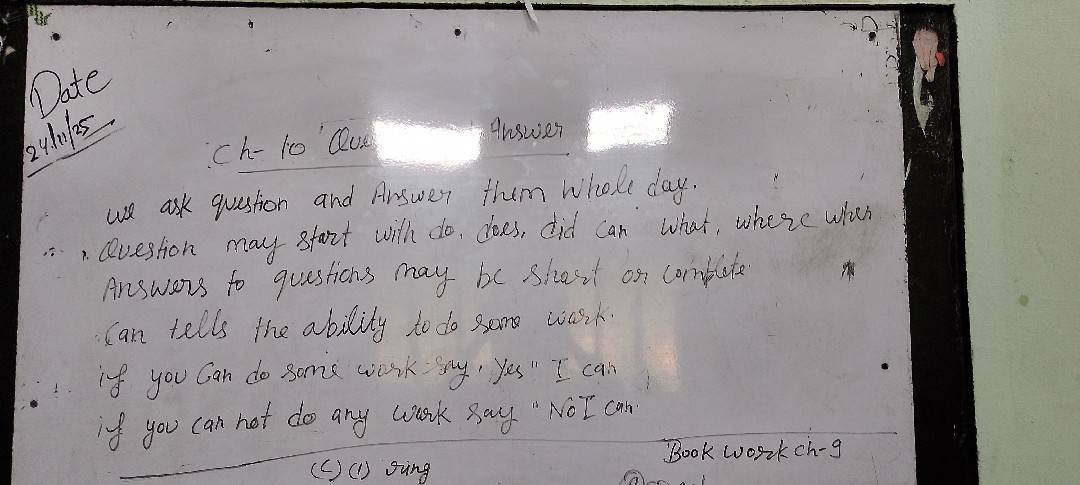 Date
24/11/25
Ch- 10 Answer
we ask question and Answer them Whole day.
Question may start with do, does, did can what, where when
Answers to questions may be short or complete
Can tells the ability to do some work.
if you Can do some work say, Yes" I can
if you can not do any work say "No I can
Book work ch-9
(C) (1) rung